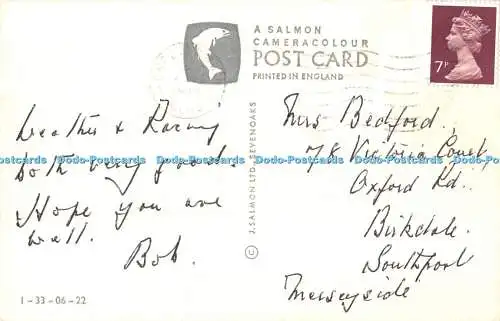 A SALMON
CAMERACOLOUR
POST CARD
PRINTED IN ENGLAND
7P
Weather & Racing
both very good.
Hope you are
well.
Bob.
© J. SALMON LTD., SEVENOAKS
Mrs Bedford.
78 Victoria Court,
Oxford Rd.
Birkdale.
Southport
Merseyside
1-33-06-22
Dodo-Postcards Dodo-Postcards Dodo-Postcards Dodo-Postcards Dodo-Postcards Dodo-Postcards